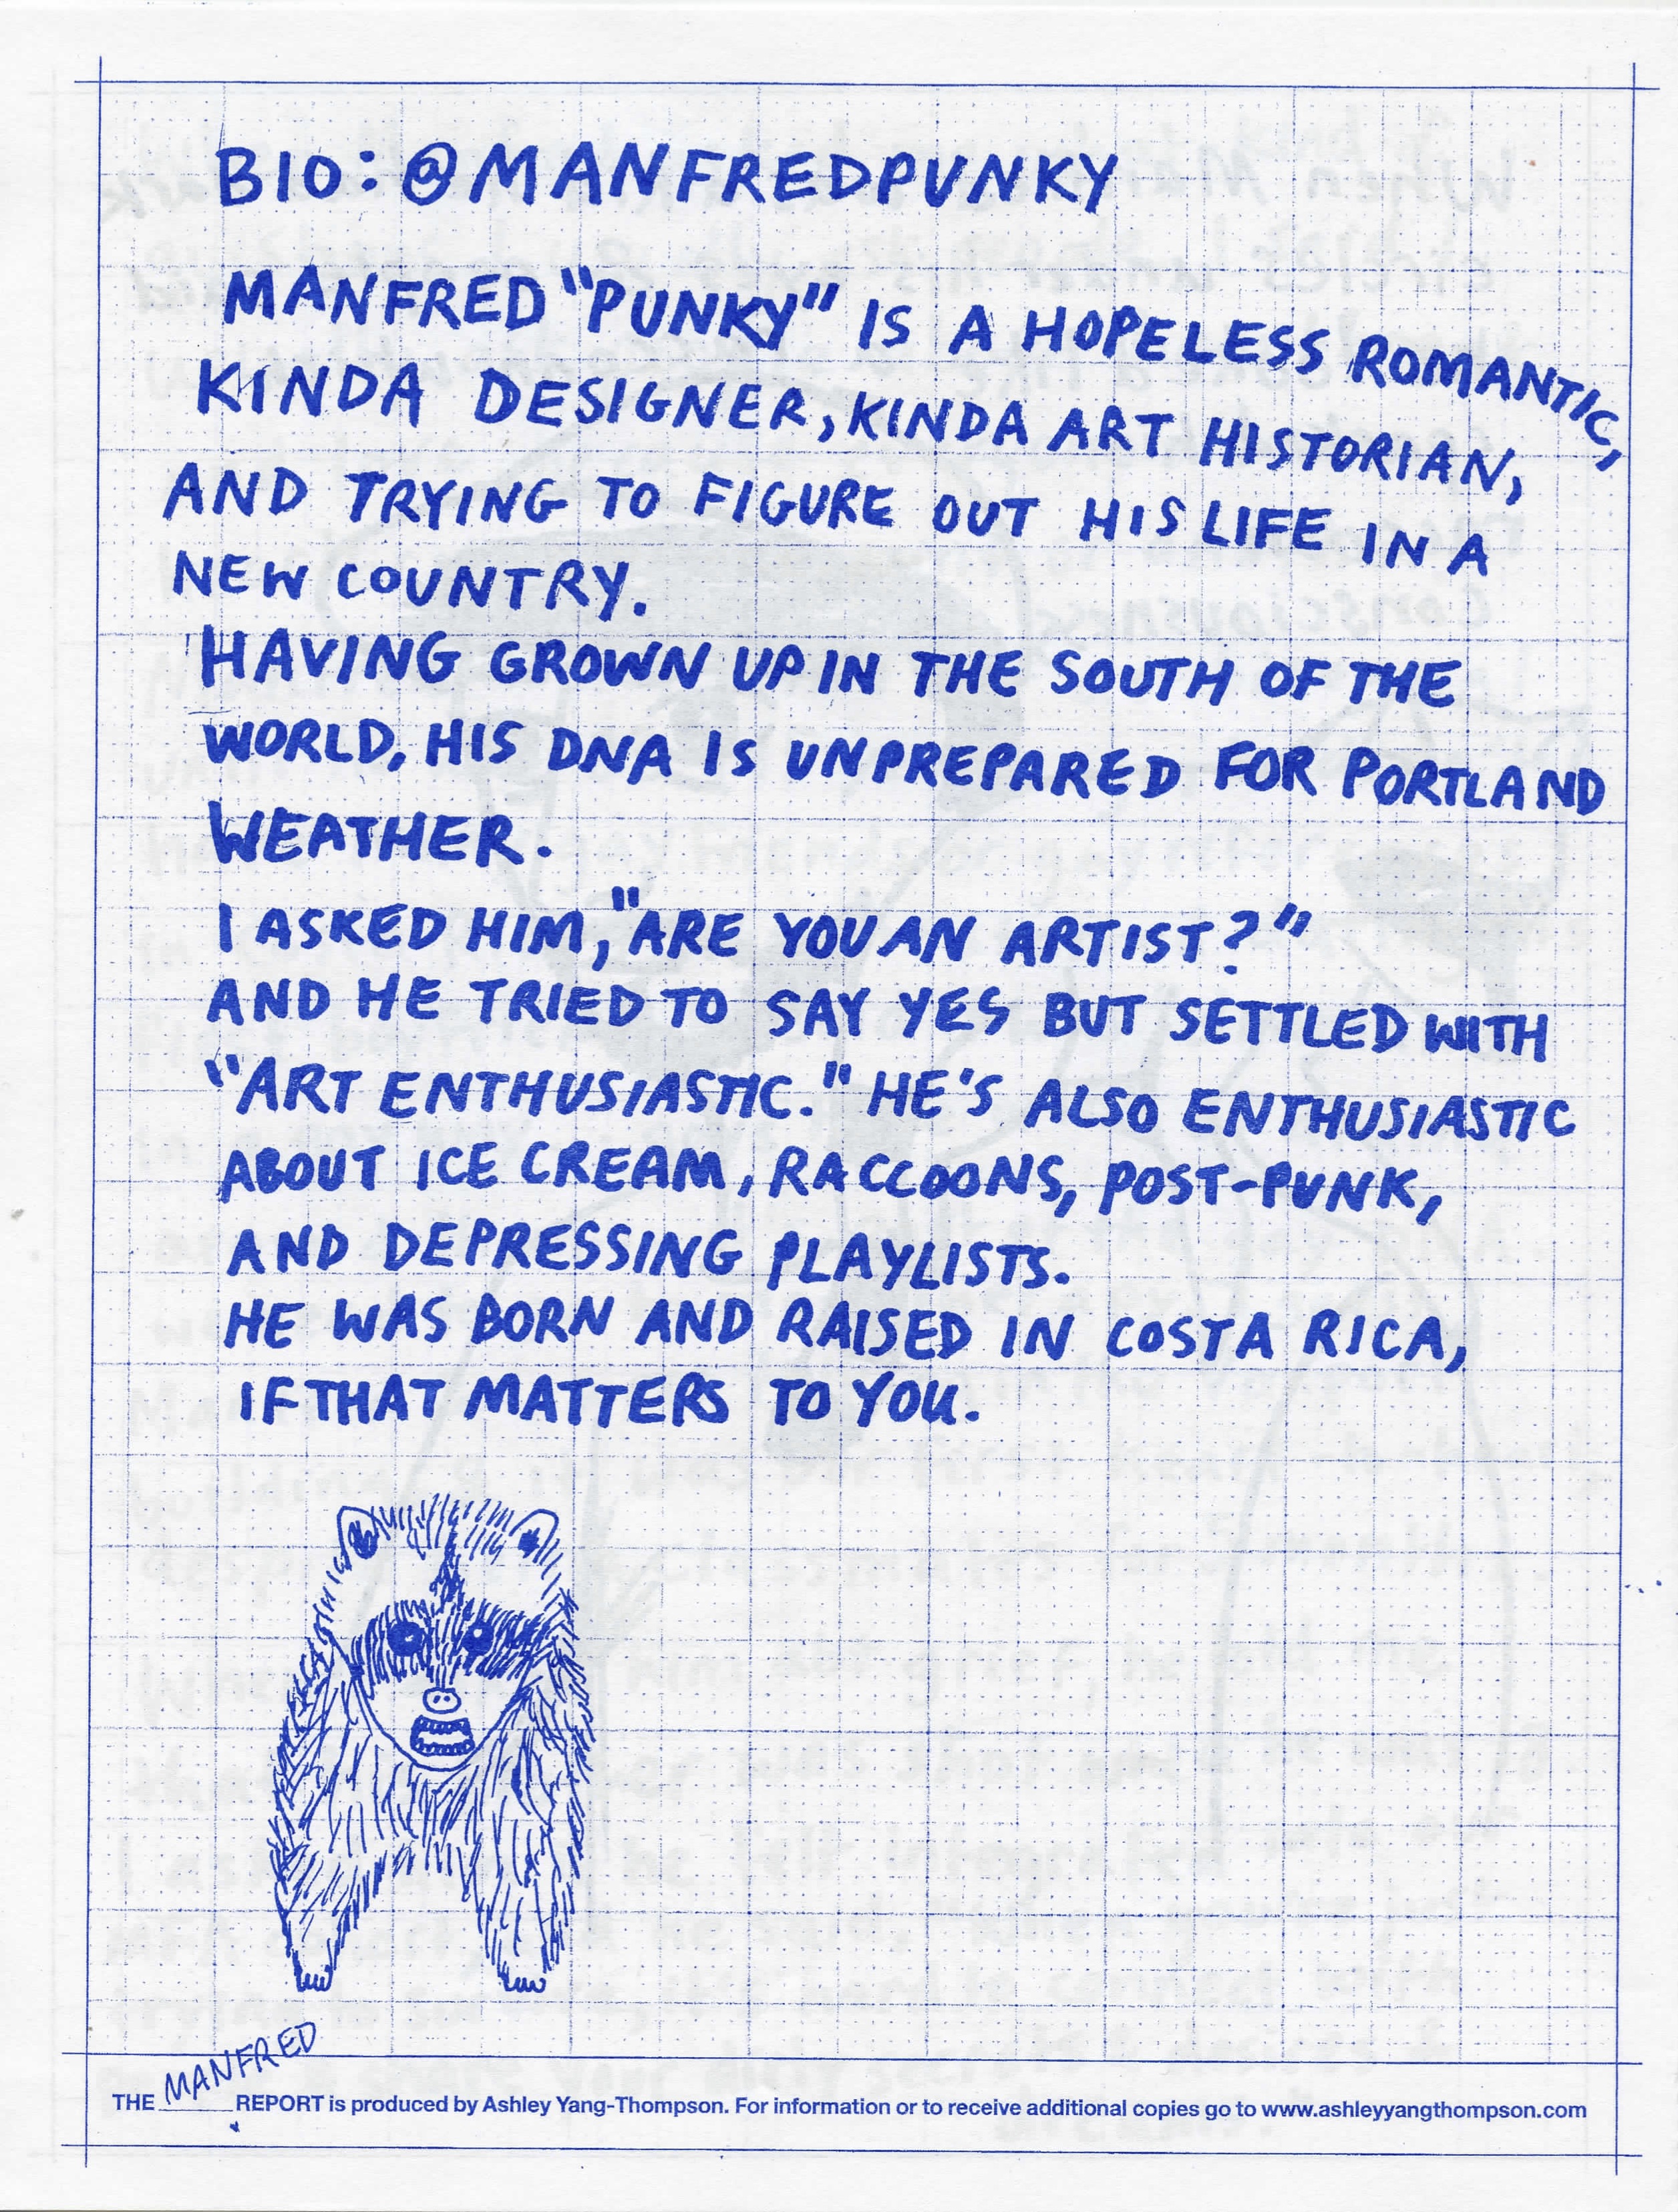 BIO: @MANFREDPUNKY
MANFRED "PUNKY" IS A HOPELESS ROMANTIC,
KINDA DESIGNER, KINDA ART HISTORIAN,
AND TRYING TO FIGURE OUT HIS LIFE IN A
NEW COUNTRY.
HAVING GROWN UP IN THE SOUTH OF THE
WORLD, HIS DNA IS UNPREPARED FOR PORTLAND
WEATHER.
I ASKED HIM, "ARE YOU AN ARTIST?"
AND HE TRIED TO SAY YES BUT SETTLED WITH
"ART ENTHUSIASTIC." HE'S ALSO ENTHUSIASTIC
ABOUT ICE CREAM, RACCOONS, POST-PUNK,
AND DEPRESSING PLAYLISTS.
HE WAS BORN AND RAISED IN COSTA RICA,
IF THAT MATTERS TO YOU.
THE MANFRED REPORT is produced by Ashley Yang-Thompson. For information or to receive additional copies go to www.ashleyyangthompson.com